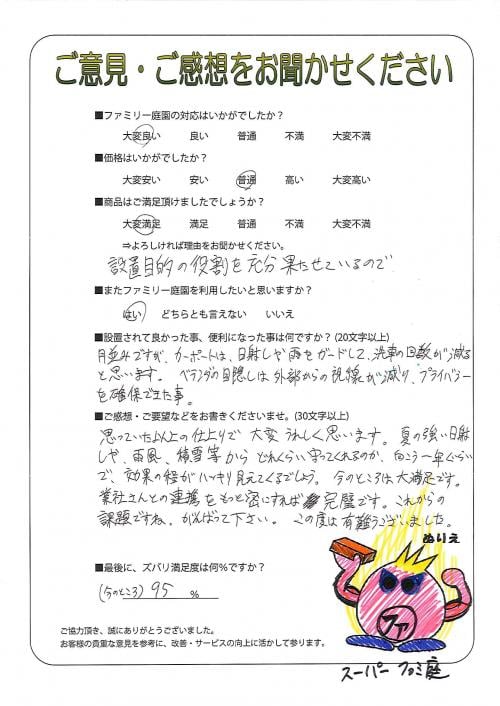 ご意見・ご感想をお聞かせください
■ファミリー庭園の対応はいかがでしたか?
大変良い 良い 普通 不満 大変不満
■価格はいかがでしたか?
大変安い 安い 普通 高い 大変高い
■商品はご満足頂けましたでしょうか?
大変満足 満足 普通 不満 大変不満
⇒よろしければ理由をお聞かせください。
設置目的の役割を充分果たせているので
■またファミリー庭園を利用したいと思いますか?
はい どちらとも言えない いいえ
■設置されて良かった事、便利になった事は何ですか? (20文字以上)
月並みですが、カーポートは、日射しや雨をガードして、洗車の回数が減る
と思います。 ベランダの目隠しは外部からの視線が減り、プライバシー
を確保できた事。
■ご感想・ご要望などをお書きくださいませ。(30文字以上)
思っていた以上の仕上りで 大変うれしく思います。 夏の強い日射
しや、雨風、積雪等から どれくらい守ってくれるのか、向こう一年ぐらい
で、効果の程がハッキリ見えてくるでしょう。 今のところは大満足です。
業社さんとの連携をもっと密にすれば 完璧です。 これからの
課題ですね。がんばって下さい。 この度は有難うございました。
ぬりえ
■最後に、ズバリ満足度は何%ですか?
(今のところ) 95 %
ファ
ご協力頂き、誠にありがとうございました。
お客様の貴重な意見を参考に、改善・サービスの向上に活かして参ります。
スーパー ファミ庭